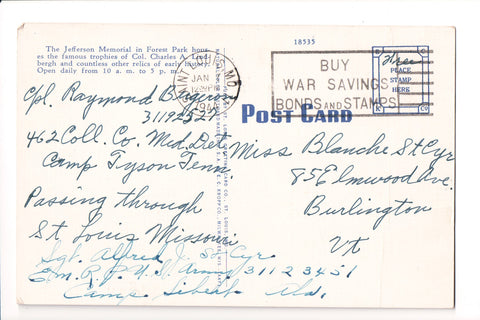 18535
The Jefferson Memorial in Forest Park hous-
es the famous trophies of Col. Charles A. Lind-
bergh and countless other relics of early history.
Open daily from 10 a. m. to 5 p. m.
MO.
JAN
BUY
WAR SAVINGS
BONDS AND STAMPS
Free
PLACE
STAMP
HERE
POST CARD
Cpl. Raymond
31192527
462 Coll. Co. Med. Det
Camp Tyson Tenn.
Passing through
St Louis Missouri
Sgt. Alfred J. St Cyr
U.S. Army 31123451
Camp Sibert Ala.
Miss Blanche St Cyr
85 Elmwood Ave.
Burlington
Vt